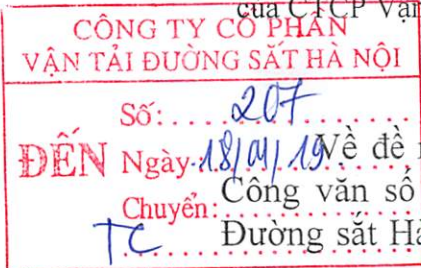 của CTCP Vận
CÔNG TY CỔ PHẦN
VẬN TẢI ĐƯỜNG SẮT HÀ NỘI
Số: 207
ĐẾN Ngày 18/01/19 Về đề
Chuyển: Công văn số
TC Đường sắt Hà